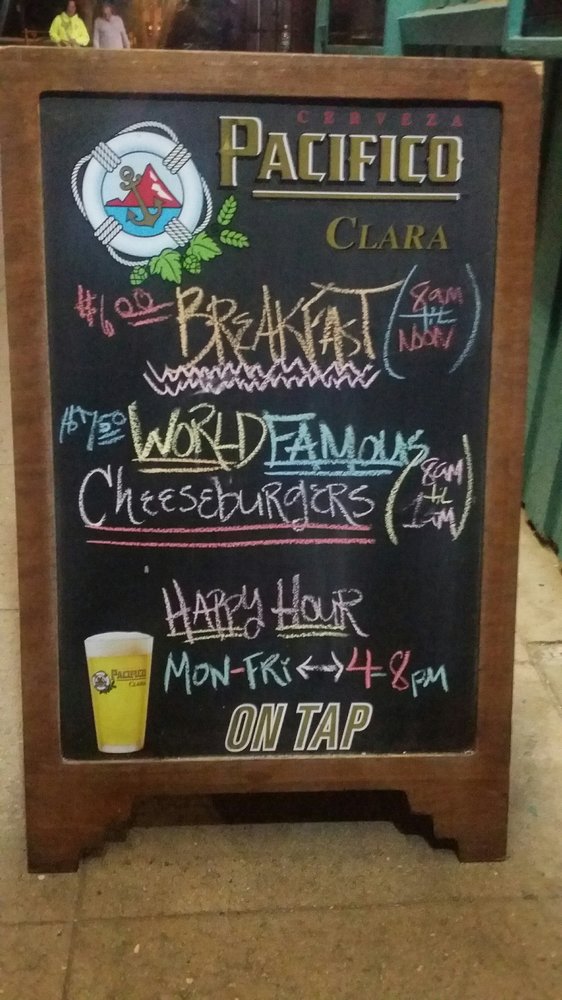 CERVEZA
PACIFICO
CLARA
$6.00 BREAKFAST (8am til NOON)
$7.50 WORLD FAMOUS
CHEESEBURGERS (8am til 1am)
HAPPY HOUR
MON-FRi ↔ 4-8pm
PACIFICO
CLARA
ON TAP